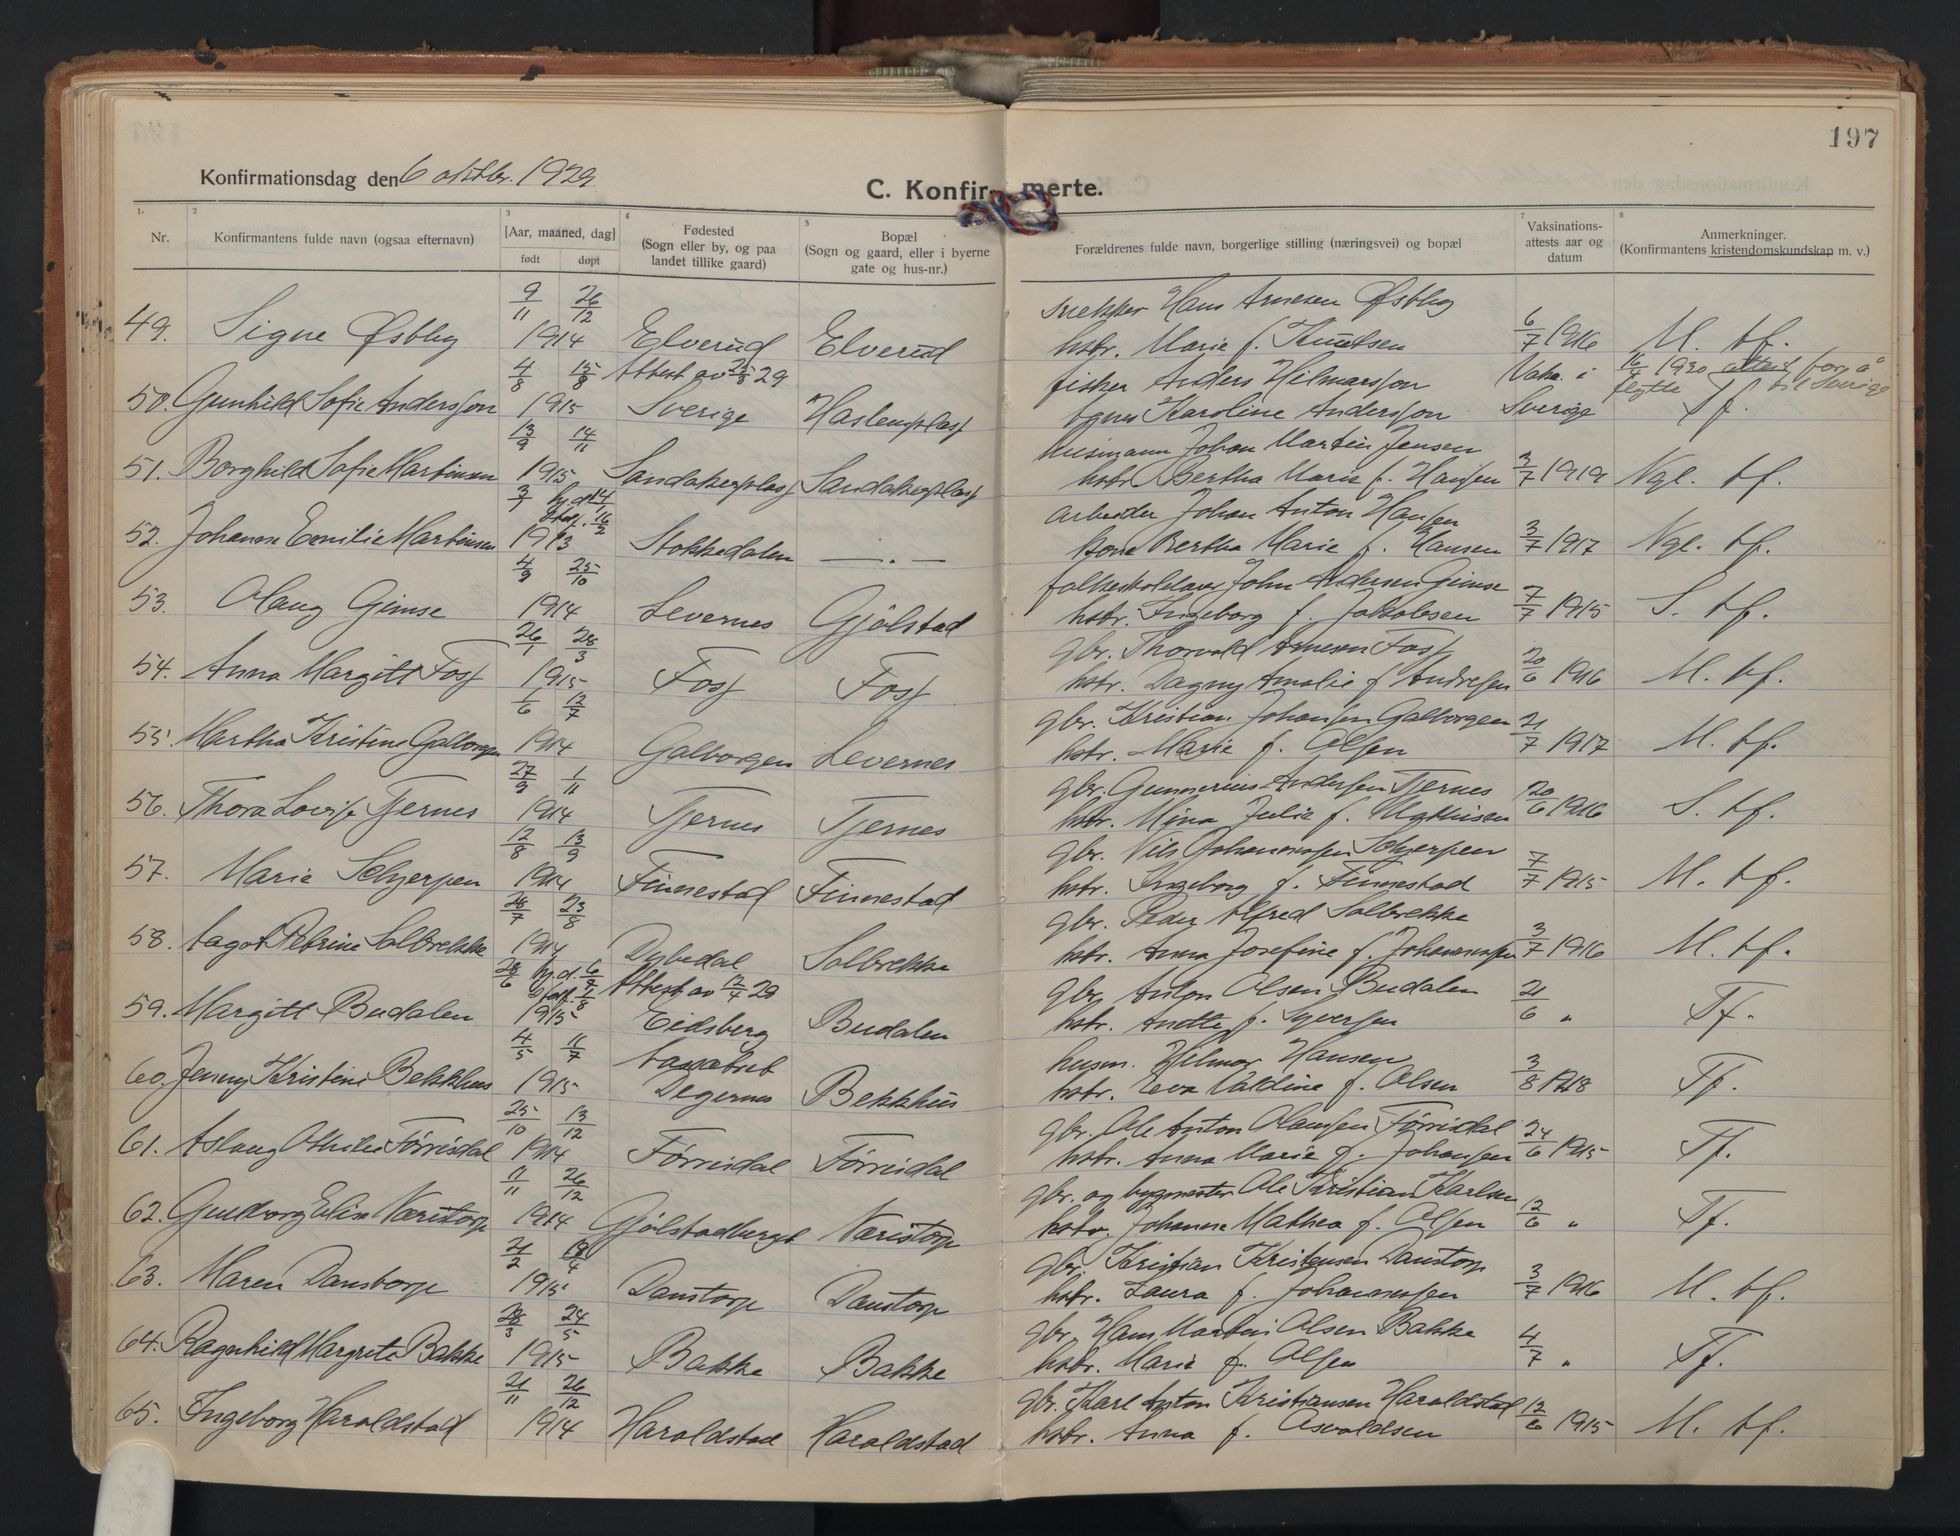 197
Konfirmationsdag den 6 oktbr. 1929
C. Konfirmerte.
1. Nr.
2 Konfirmantens fulde navn (ogsaa efternavn)
3 [Aar, maaned, dag] født døpt
4 Fødested (Sogn eller by, og paa landet tillike gaard)
5 Bopæl (Sogn og gaard, eller i byerne gate og hus-nr.)
Forældrenes fulde navn, borgerlige stilling (næringsvei) og bopæl
7 Vaksinations-attests aar og datum
8 Anmerkninger. (Konfirmantens kristendomskundskap m. v.)
9/11 26/12 snekker Hans Arnesen Østby
49. Signe Østby 1914 Elverud Elverud hstr. Marie f. Knutsen 6/7 1916 M. tf.
4/8 15/8 Attest av 25/8 29 fisker Anders Hilmarsson Vaks. i 16/4 1930 attest for å
50. Gunhild Sofie Andersson 1915 Sverige Haslemplass Karoline Andersson Sverige flytte til Sverige Tf.
13/9 14/11 husmann Johan Martin Jensen
51. Borghild Sofie Martinsen 1915 Sandakerplass Sandakerplass hstr. Bertha Marie f. Hansen 3/7 1919 Ngl. tf.
3/7 hj.d. 14/7 stadf. 16/2 arbeider Johan Anton Hansen
52. Johanne Emilie Martinsen 1913 Stokkedalen — . — kone Bertha Marie f. Hansen 3/7 1917 Ngl. tf.
4/9 25/10 folkeskolelærer John Andersen Gimse
53. Olaug Gimse 1914 Levernes Gjølstad hstr. Ingeborg f. Jakobsen 7/7 1915 S. tf.
26/1 28/3 gbr. Thorvald Arnesen Foss
54. Anna Margitt Foss 1915 Foss Foss hstr. Dagny Amalie f. Andresen 20/6 1916 M. tf.
1/6 12/7 gbr. Kristian Johansen Galborgen
55. Martha Kristine Galborgen 1914 Galborgen Levernes hstr. Marie f. Olsen 21/7 1917 M. tf.
27/9 1/11 gbr. Gunnerius Andersen Tjernes
56. Thora Lovise Tjernes 1914 Tjernes Tjernes hstr. Mina Julie f. Mathisen 20/6 1916 S. tf.
12/8 13/9 gbr. Nils Johannessen Schjerpen
57. Marie Schjerpen 1914 Finnestad Finnestad hstr. Ingeborg f. Finnestad 7/7 1915 M. tf.
28/7 23/8 gbr. Peder Alfred Solbrekke
58. Aagot Petrine Solbrekke 1914 Dybedal Solbrekke hstr. Anna Josefine f. Johannessen 3/7 1916 M. tf.
28/6 hj.d. stadf. 1/8 Attest av 12/4 29 gbr. Anton Olsen Budalen
59. Margitt Budalen 1915 Eidsberg Budalen hstr. f. Syversen 21/6 " Tf.
4/5 11/7 husm. Hilmar Hansen
60. Jenny Kristine Bekkhus 1915 Degernes Bekkhus hstr. Eva Valdine f. Olsen 3/8 1918 Tf.
25/10 13/12 gbr. Ole Anton Olaussen Førrisdal
61. Aslaug Othilie Førrisdal 1914 Førrisdal Førrisdal hstr. Anna Marie f. Johansen 24/6 1915 Tf.
11/11 26/12 gbr. og bygmester Ole Kristian Karlsen
62. Gudborg Elise Næristorp 1914 Gjølstadberget Næristorp hstr. Johanne Mathea f. Olsen 12/6 " Tf.
21/2 18/4 gbr. Kristian Kristensen Danstorp
63. Maren Danstorp 1915 Danstorp Danstorp hstr. Laura f. Johannessen 3/7 1916 M. tf.
28/3 24/5 gbr. Hans Martin Olsen Bakke
64. Ragnhild Margrete Bakke 1915 Bakke Bakke hstr. Marie f. Olsen 4/7 " Tf.
21/11 26/12 gbr. Karl Anton Kristiansen Haraldstad
65. Ingeborg Haraldstad 1914 Haraldstad Haraldstad hstr. Anna f. Asvaldsen 12/6 1915 M. tf.